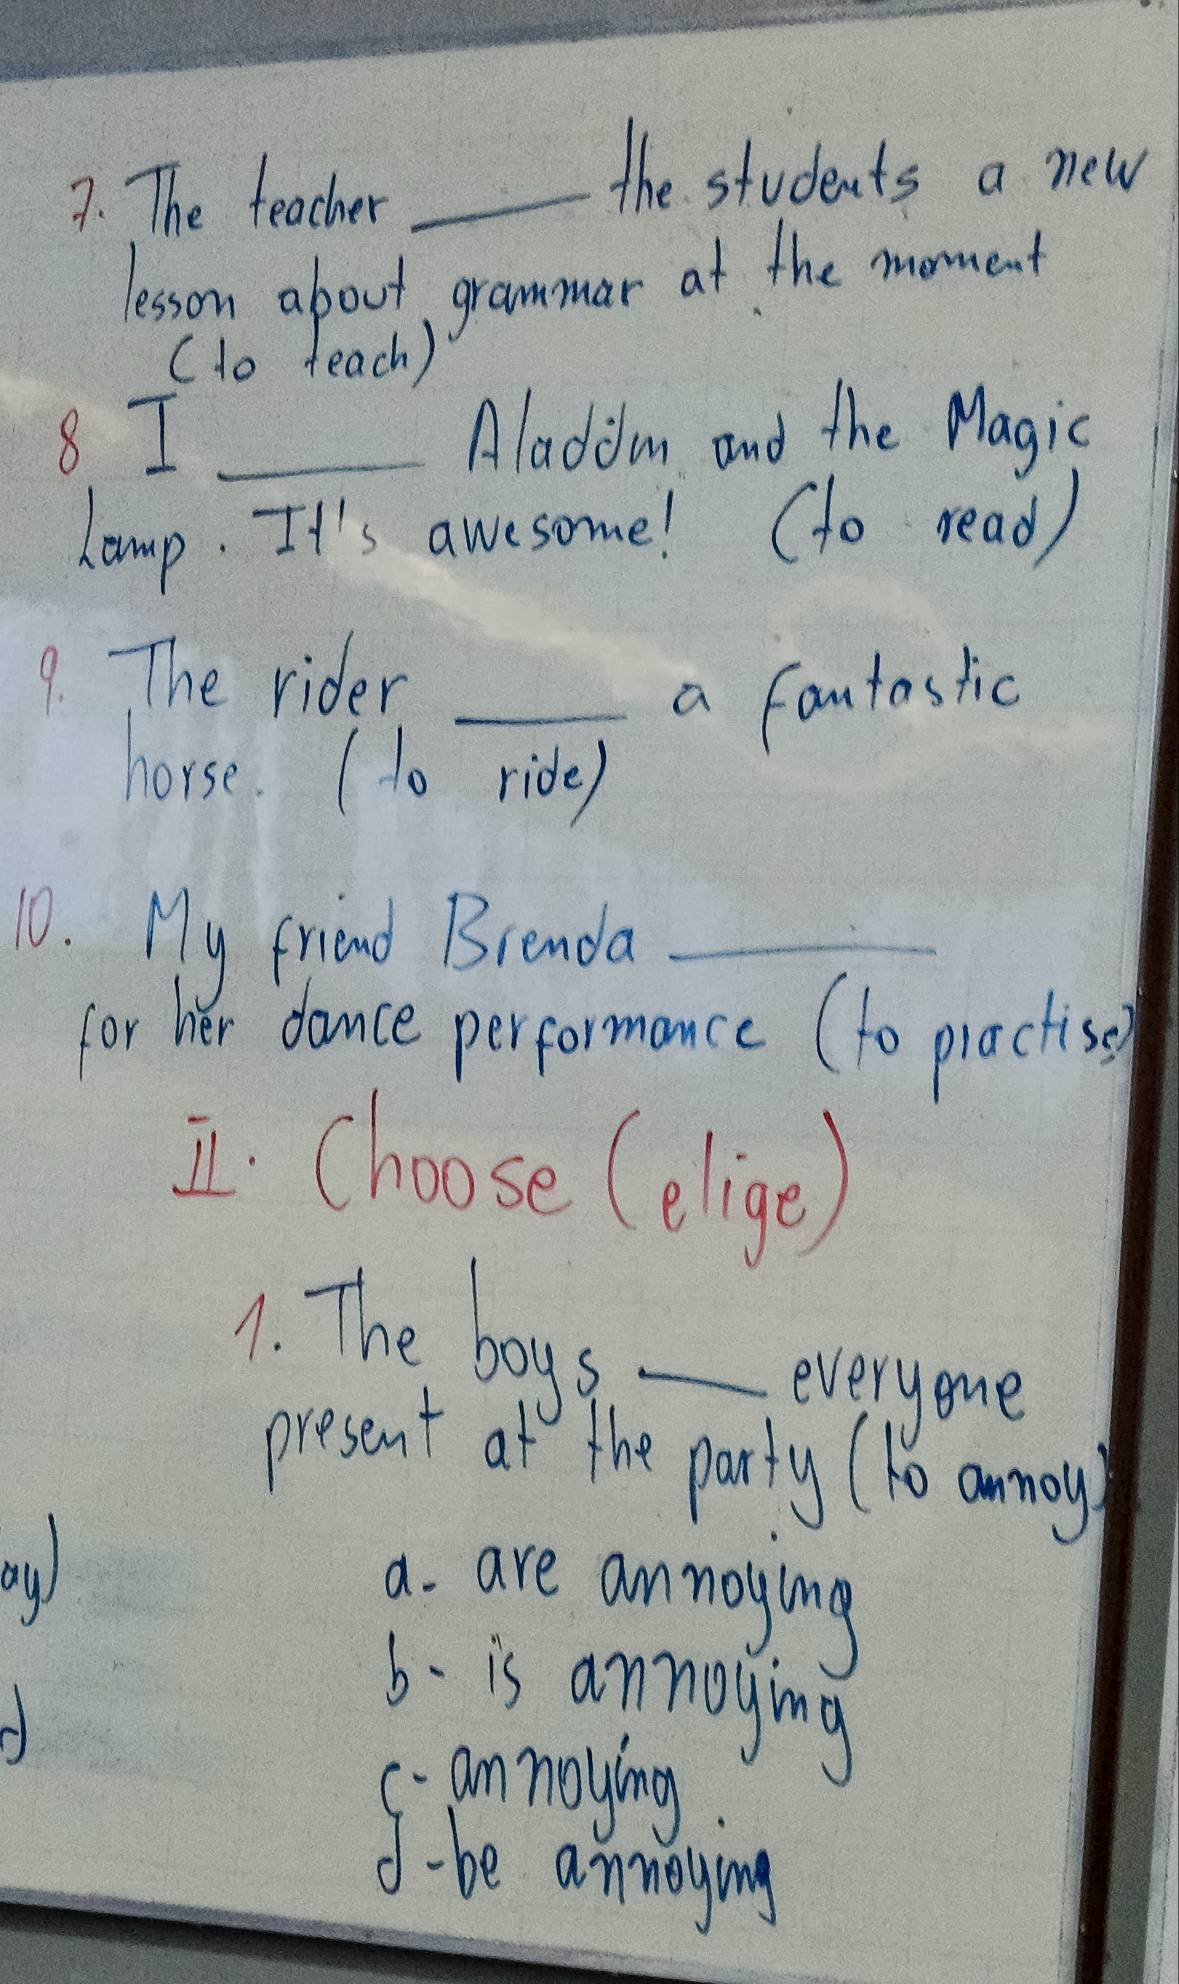 7. The teacher ____ the students a new
lesson about grammar at the moment
(to teach)
8. I ____ Aladdin and the Magic
Lamp. It's awesome! (to read)
9. The rider ____ a fantastic
horse. (to ride)
10. My friend Brenda ____
for her dance performance (to practise)
II. Choose (elige)
1. The boys ____ everyone
present at the party (to annoy)
ay)
a- are annoying
b- is annoying
d
c- annoying
d- be annoying